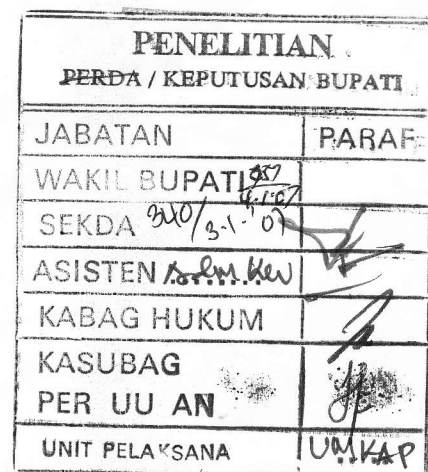 PENELITIAN
PERDA / KEPUTUSAN BUPATI
JABATAN PARAF
WAKIL BUPATI
SEKDA 340/3-1-'07
ASISTEN
KABAG HUKUM
KASUBAG
PER UU AN
UNIT PELAKSANA UM.KAP